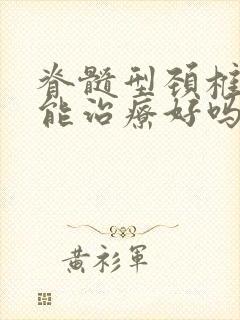 脊髓型颈椎
能治疗好吗
黄衫军